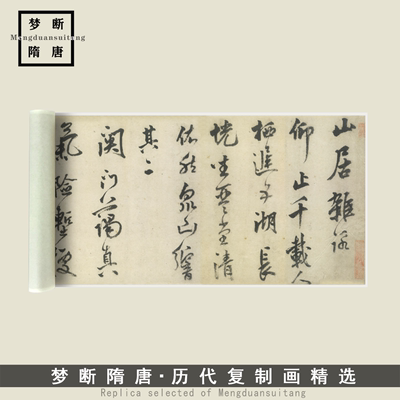 梦断
Mengduansuitang
隋唐
山居雜詠
仰止千載人
栖遲 湖長
恍坐 堂清
依然泉 響
其二
門藹真
氣陰壑
梦断隋唐·历代复制画精选
Replica selected of Mengduansuitang